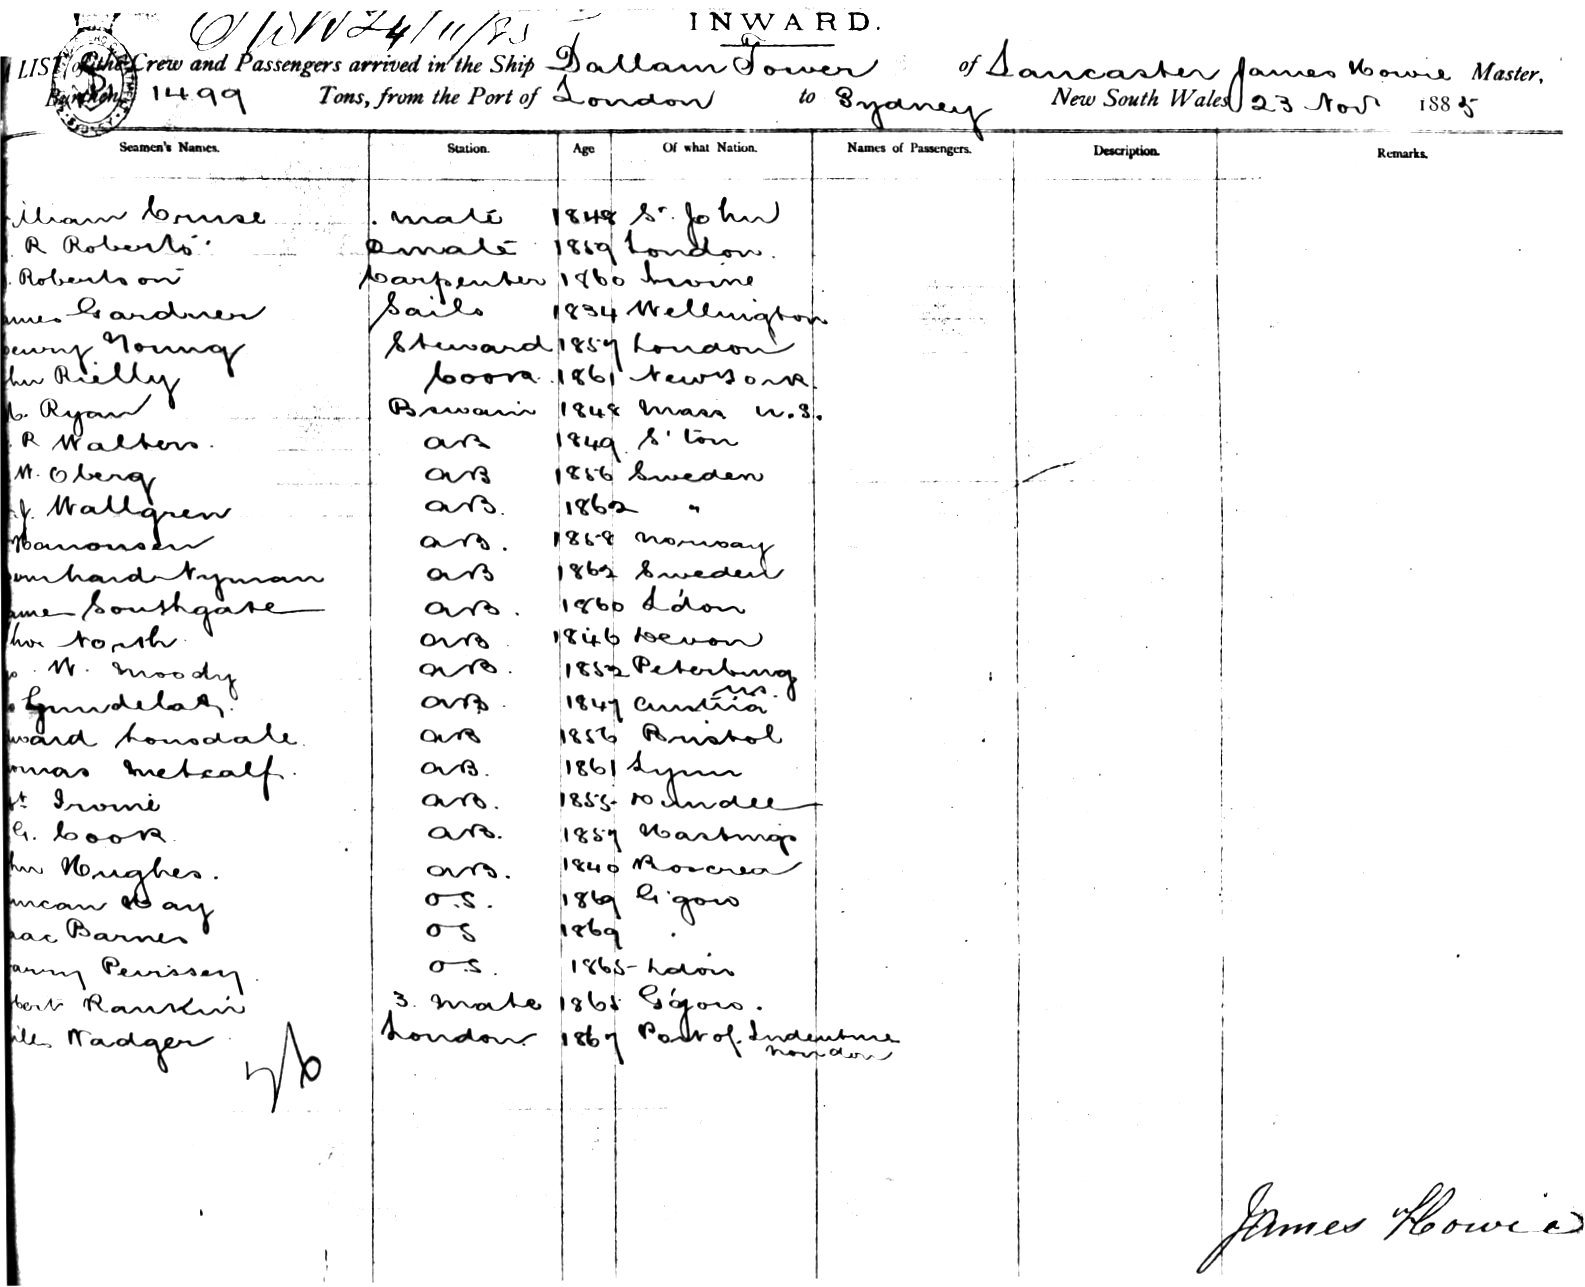 INWARD.
24/11/85
LIST of the Crew and Passengers arrived in the Ship Dallam Tower of Lancaster James Howie Master,
Burthen 1499 Tons, from the Port of London to Sydney New South Wales 23 Nov 1885
Seamen's Names. Station. Age Of what Nation. Names of Passengers. Description. Remarks.
illiam Cruse . mate 1848 St. John
R Roberts 2 mate 1859 London.
. Robertson Carpenter 1860 Irvine
ames Gardner Sails 1834 Wellington
enry Young Steward 1857 London
hn Rielly Cook 1861 New York.
Ryan Bswain 1848 Mass U.S.
. R Walters. AB 1849 S'ton
W. Oberg AB 1856 Sweden
.J. Wallgren AB. 1862 "
Hanonsen AB. 1858 Norway
ernhard Nyman AB 1862 Sweden
ame Southgate AB. 1860 L'don
North AB 1846 Devon
. W. Moody AB. 1852 Peterburg
U.S.
AB. 1847 Austria
ward Lonsdale. AB 1856 Bristol
omas Metcalf. AB. 1861 Lynn
t Irvine AB. 1855 Dundee
G. Cook AB. 1857 Hastings
hn Hughes. AB. 1840 Roscrea
uncan Hay O.S. 1869 G'gow
aac Barnes OS 1869 "
arry Perissey. O.S. 1865 Ldon
bert Rankin 3. Mate 1865 G'gow.
iles Nadger London. 1867 Port of Indenture
London
26
James Howie